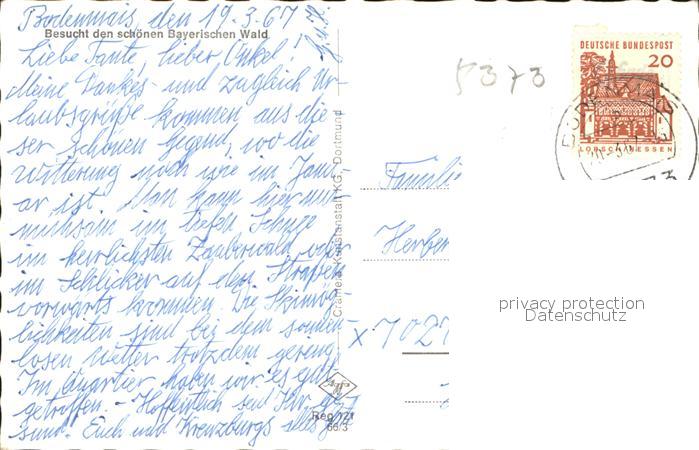 Bodenmais, den 19.3.67
Besucht den schönen Bayerischen Wald
Liebe Tante, lieber Onkel!
Meine Dankes- und zugleich Ur-
laubsgrüße kommen aus die
ser schönen Gegend, wo die
Witterung noch wie im Janu-
ar ist. Man kann hier nur
mühsam im tiefen Schnee
im herrlichsten Zauberwald oder
im Schlicker auf den Straßen
vorwärts kommen. Die Skimög-
lichkeiten sind bei dem sonnen-
losen Wetter trotzdem gering.
Im Quartier haben wir es gut
getroffen. - Hoffentlich seid Ihr
sund. Euch und Kreuzburgs alles
Cramers Kunstanstalt KG, Dortmund
Reg 121
66/3
5373
DEUTSCHE BUNDESPOST
20
LORSCH/HESSEN
Familie
Herber
x 7027
privacy protection
Datenschutz